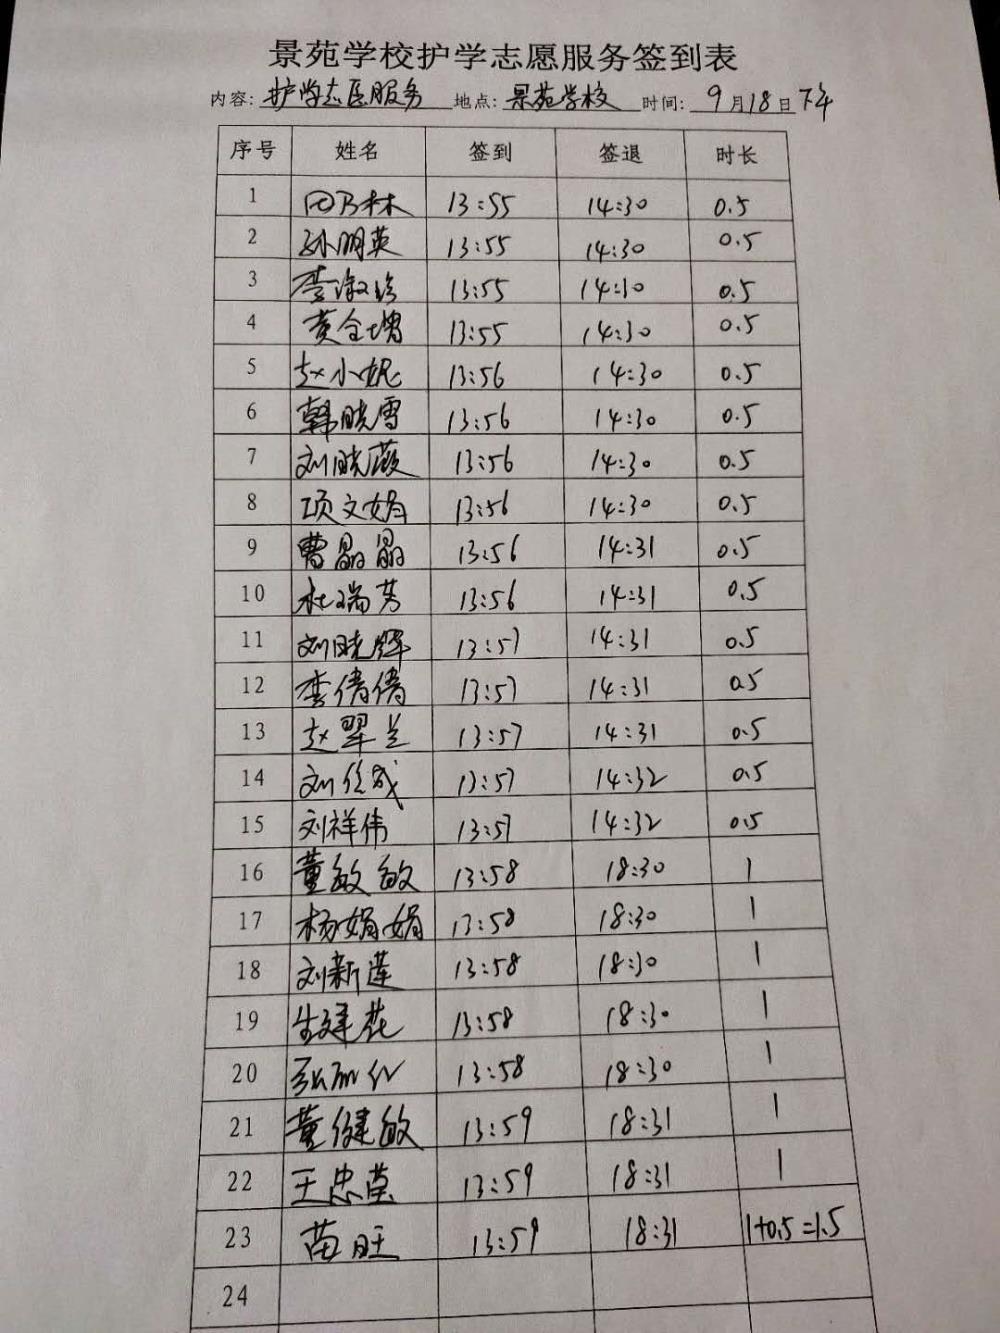 景苑学校护学志愿服务签到表
内容: 护学志愿服务 地点: 景苑学校 时间: 9月18日下午
序号 姓名 签到 签退 时长
1 田乃林 13:55 14:30 0.5
2 孙明英 13:55 14:30 0.5
3 李淑珍 13:55 14:30 0.5
4 黄全增 13:55 14:30 0.5
5 赵小妮 13:56 14:30 0.5
6 韩晓雪 13:56 14:30 0.5
7 刘晓薇 13:56 14:30 0.5
8 项文娟 13:56 14:30 0.5
9 曹晶晶 13:56 14:31 0.5
10 杜瑞芳 13:56 14:31 0.5
11 刘晓辉 13:57 14:31 0.5
12 李倩倩 13:57 14:31 0.5
13 赵翠兰 13:57 14:31 0.5
14 刘 成 13:57 14:32 0.5
15 刘祥伟 13:57 14:32 0.5
16 董敏敏 13:58 18:30 1
17 杨娟娟 13:58 18:30 1
18 刘新莲 13:58 18:30 1
19 生建花 13:58 18:30 1
20 张丽 13:58 18:30 1
21 董健敏 13:59 18:31 1
22 王忠莹 13:59 18:31 1
23 苗旺 13:59 18:31 1+0.5=1.5
24